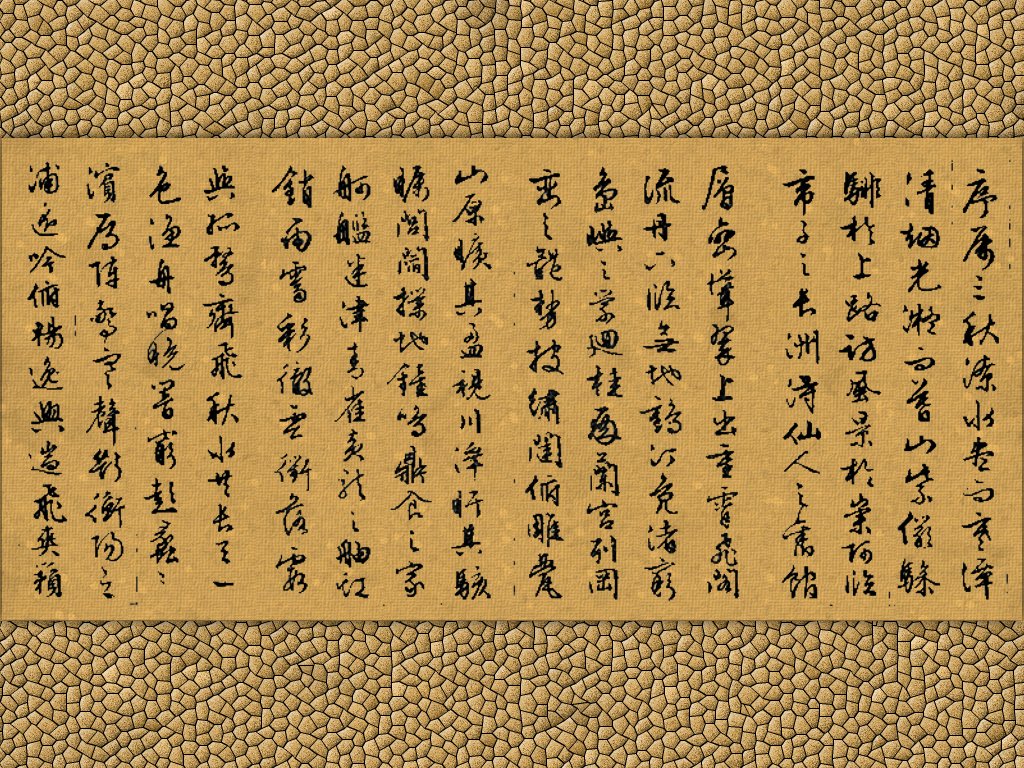 序属三秋潦水盡而寒潭
清烟光凝而暮山紫儼驂
騑於上路訪風景於崇阿臨
帝子之長洲得仙人之舊館
層巒聳翠上出重霄飛閣
流丹下臨無地鶴汀鳧渚窮
島嶼之縈迴桂殿蘭宮列岡
巒之體勢披繡闥俯雕甍
山原曠其盈視川澤盱其駭
矚閭閻撲地鐘鳴鼎食之家
舸艦迷津青雀黃龍之舳虹
銷雨霽彩徹雲衢落霞
與孤鶩齊飛秋水共長天一
色漁舟唱晚響窮彭蠡之
濱雁陣驚寒聲斷衡陽之
浦遥吟俯暢逸興遄飛爽籟